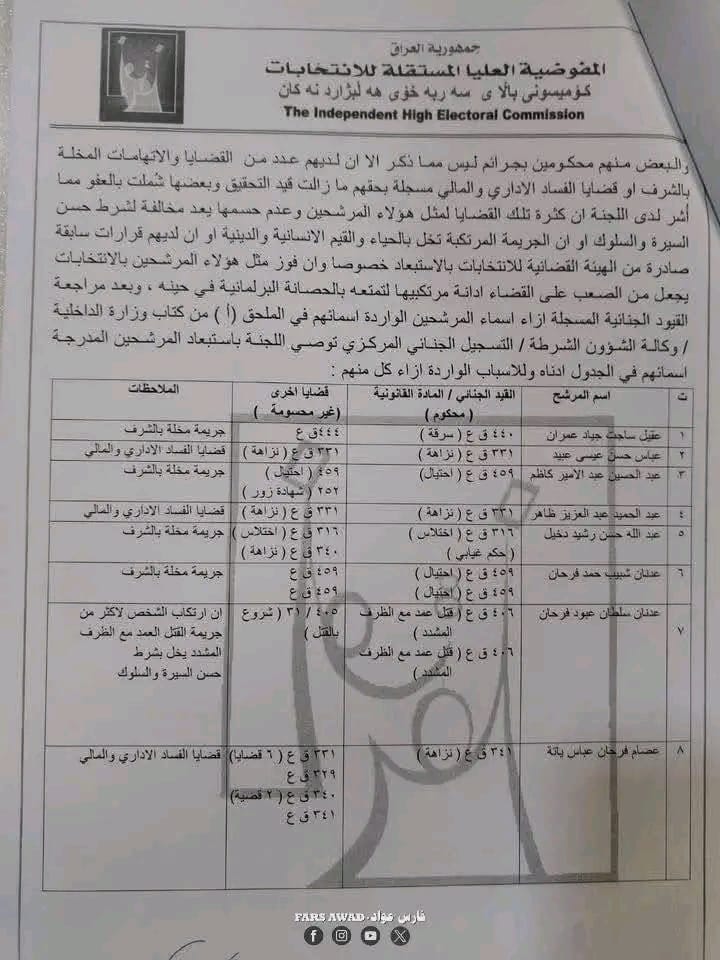 جمهورية العراق
المفوضية العليا المستقلة للانتخابات
كۆميسونى بالاى سه ربه خوى هه لبژاردنه كان
The Independent High Electoral Commission
والبعض منهم محكومين بجرائم ليس مما ذكر الا ان لديهم عدد من القضايا والاتهامات المخلة
بالشرف او قضايا الفساد الاداري والمالي مسجلة بحقهم ما زالت قيد التحقيق وبعضها شُملت بالعفو مما
أشر لدى اللجنة ان كثرة تلك القضايا لمثل هؤلاء المرشحين وعدم حسمها يعد مخالفة لشرط حسن
السيرة والسلوك او ان الجريمة المرتكبة تخل بالحياء والقيم الانسانية والدينية او ان لديهم قرارات سابقة
صادرة من الهيئة القضائية للانتخابات بالاستبعاد خصوصا وان فوز مثل هؤلاء المرشحين بالانتخابات
يجعل من الصعب على القضاء ادانة مرتكبيها لتمتعه بالحصانة البرلمانية في حينه ، وبعد مراجعة
القيود الجنائية المسجلة ازاء اسماء المرشحين الواردة اسمائهم في الملحق (أ) من كتاب وزارة الداخلية
/ وكالة الشؤون الشرطة / التسجيل الجنائي المركزي توصي اللجنة باستبعاد المرشحين المدرجة
اسمائهم في الجدول ادناه وللاسباب الواردة ازاء كل منهم :
ت اسم المرشح القيد الجنائي / المادة القانونية قضايا اخرى الملاحظات
( محكوم ) (غير محسومة )
١ عقيل ساجت جياد عمران ٤٤٠ ق ع ( سرقة ) ٤٤٤ق ع جريمة مخلة بالشرف
٢ عباس حسن عيسى عبيد ٣٣١ ق ع ( نزاهة ) ٣٣١ ق ع ( نزاهة ) قضايا الفساد الاداري والمالي
٣ عبد الحسين عبد الامير كاظم ٤٥٩ ق ع (احتيال) ٤٥٩ ( احتيال ) جريمة مخلة بالشرف
٢٥٢ ( شهادة زور )
٤ عبد الحميد عبد العزيز ظاهر ٣٣١ ق ع ( نزاهة ) ٣٣١ ق ع ( نزاهة ) قضايا الفساد الاداري والمالي
٥ عبد الله حسن رشيد دخيل ٣١٦ ق ع ( اختلاس ) ٣١٦ ق ع ( اختلاس ) جريمة مخلة بالشرف
( حكم غيابي ) ٣٤٠ ق ع ( نزاهة )
٦ عدنان شبيب حمد فرحان ٤٥٩ ق ع ( احتيال ) ٤٥٩ ق ع جريمة مخلة بالشرف
٤٥٩ ق ع ( احتيال ) ٤٥٩ ق ع
٧ عدنان سلطان عبود فرحان ٤٠٦ ق ع ( قتل عمد مع الظرف ٤٠٥ / ٣١ ( شروع ان ارتكاب الشخص لاكثر من
المشدد ) بالقتل ) جريمة القتل العمد مع الظرف
٤٠٦ ق ع ( قتل عمد مع الظرف المشدد يخل بشرط
المشدد ) حسن السيرة والسلوك
٨ عصام فرحان عباس ياتة ٣٤١ ق ع ( نزاهة ) ٣٣١ ق ع ( ٦ قضايا) قضايا الفساد الاداري والمالي
٣٢٩ ق ع
٣٤٠ ق ع ( ٢ قضية)
٣٤١ ق ع
FARS AWAD - فارس عواد